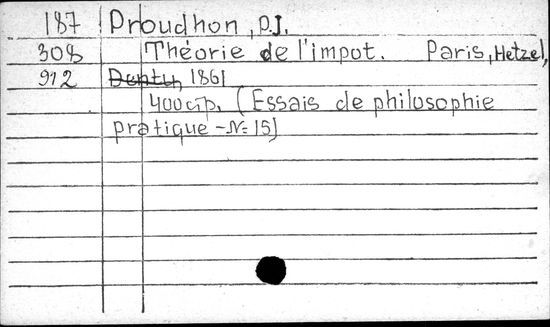 187 Proudhon, P.J.
308 Théorie de l'impot. Paris, Hetzel,
912 Dentu, 1861
400 стр. (Essais de philosophie
pratique - № 15)